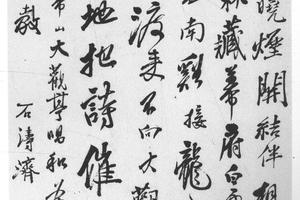 曉煙開結伴相
森藏幕府白
南雞接龍
渡來不向大觀
地把詩催
山大觀亭唱和
教
石濤濟